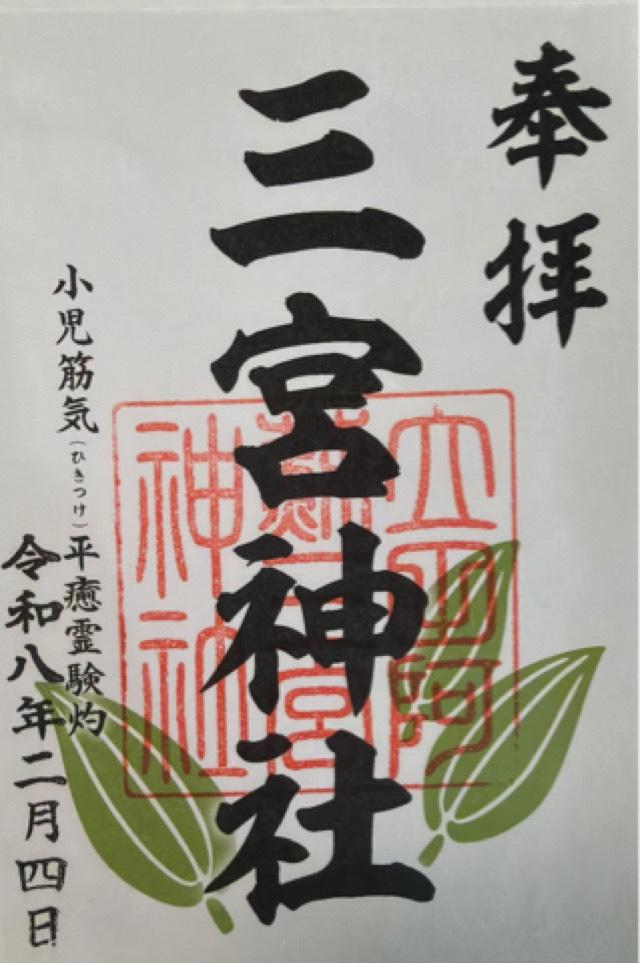 奉拝
三宮神社
小児筋気(ひきつけ)平癒霊験灼
令和八年二月四日